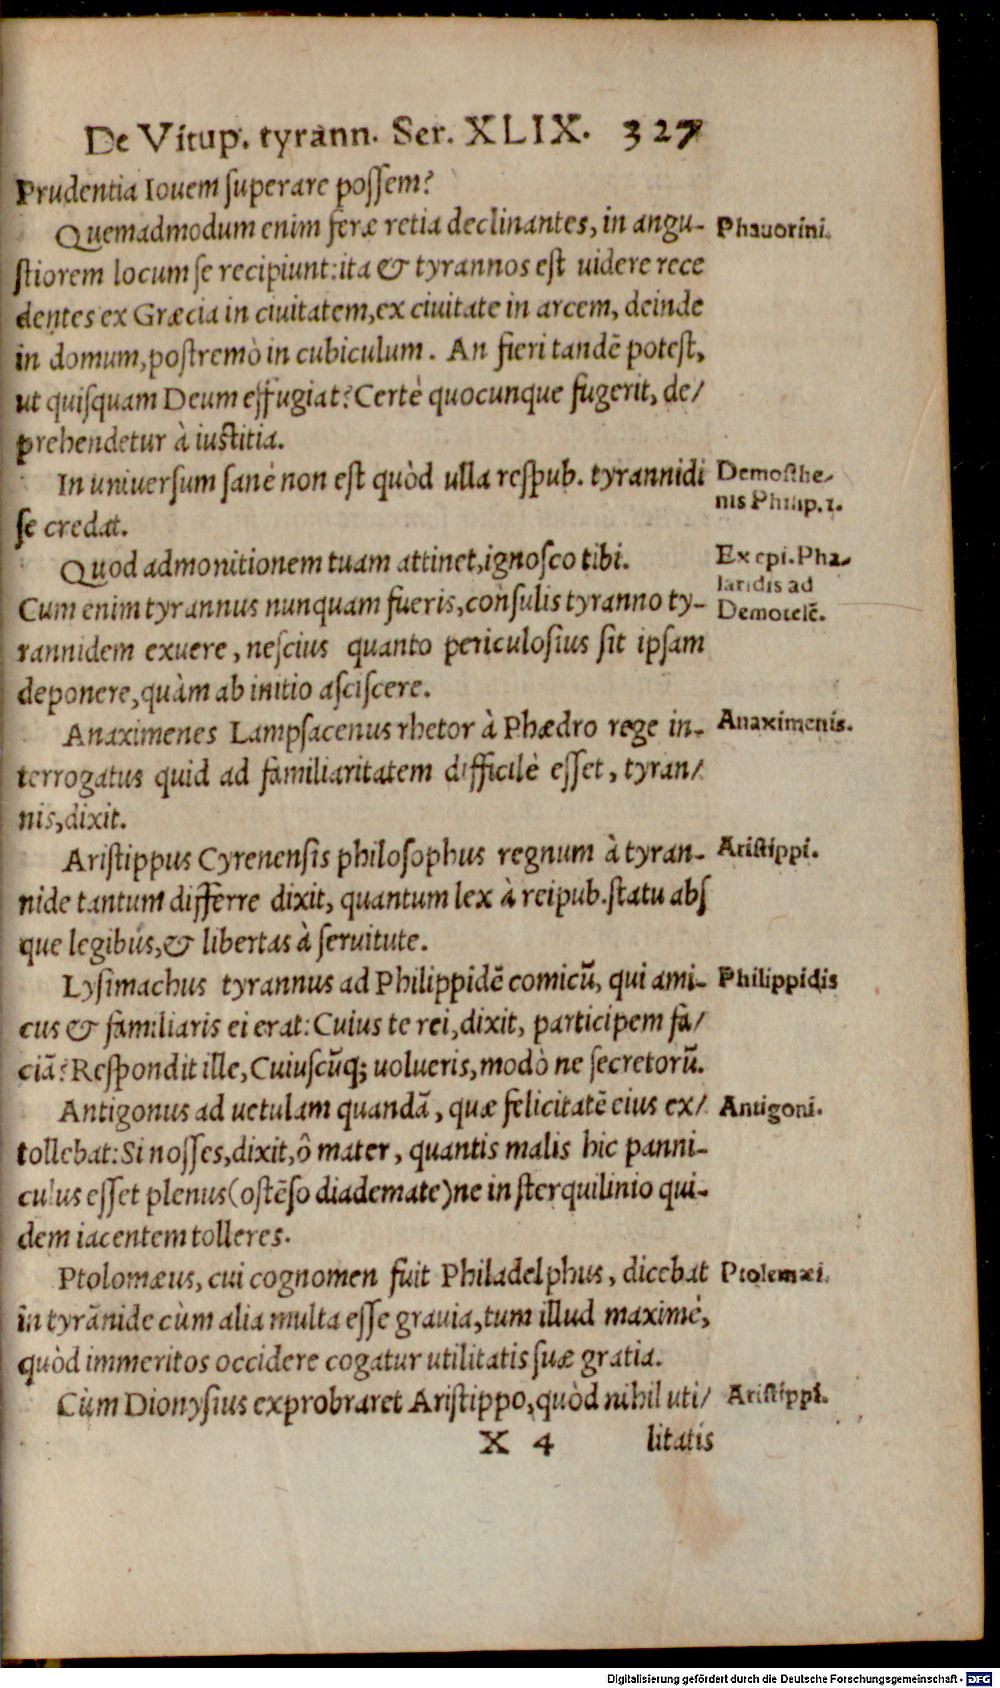 De Vitup. tyrann. Ser. XLIX. 327
Prudentia Iouem superare possem?
Quemadmodum enim feræ retia declinantes, in angu-
Phauorini.
stiorem locum se recipiunt: ita & tyrannos est uidere rece
dentes ex Græcia in ciuitatem, ex ciuitate in arcem, deinde
in domum, postremò in cubiculum. An fieri tandē potest,
ut quisquam Deum effugiat? Certè quocunque fugerit, de/
prehendetur à iustitia.
In uniuersum sanè non est quòd ulla respub. tyrannidi
Demosthe/
se credat.
nis Philip. 1.
Quod admonitionem tuam attinet, ignosco tibi.
Ex epi. Pha/
Cum enim tyrannus nunquam fueris, consulis tyranno ty-
laridis ad
Demotelē.
rannidem exuere, nescius quanto periculosius sit ipsam
deponere, quàm ab initio asciscere.
Anaximenes Lampsacenus rhetor à Phædro rege in-
Anaximenis.
terrogatus quid ad familiaritatem difficilè esset, tyran/
nis, dixit.
Aristippus Cyrenensis philosophus regnum à tyran-
Aristippi.
nide tantum differre dixit, quantum lex à reipub. statu abs
que legibus, & libertas à seruitute.
Lysimachus tyrannus ad Philippidē comicū, qui ami-
Philippidis
cus & familiaris ei erat: Cuius te rei, dixit, participem fa/
ciā? Respondit ille, Cuiuscūq; uolueris, modò ne secretorū.
Antigonus ad uetulam quandā, quæ felicitatē eius ex/
Antigoni.
tollebat: Si nosses, dixit, ô mater, quantis malis hic panni-
culus esset plenus (ostēso diademate) ne in sterquilinio qui-
dem iacentem tolleres.
Ptolomæus, cui cognomen fuit Philadelphus, dicebat
Ptolemæi.
in tyrānide cùm alia multa esse grauia, tum illud maximè,
quòd immeritos occidere cogatur utilitatis suæ gratia.
Cùm Dionysius exprobraret Aristippo, quòd nihil uti/
Aristippi.
X 4
litatis
Digitalisierung gefördert durch die Deutsche Forschungsgemeinschaft - DFG